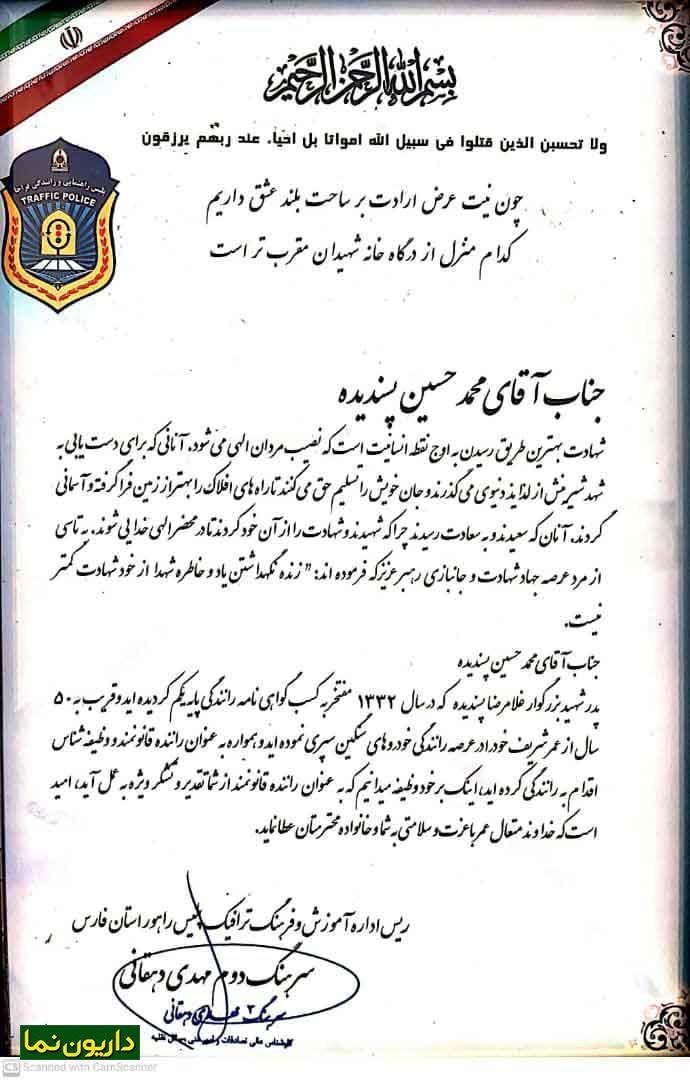 بسم الله الرحمن الرحیم
ولا تحسبن الذین قتلوا فی سبیل الله امواتا بل احیاء عند ربهم یرزقون
پلیس راهنمایی و رانندگی فراجا
TRAFFIC POLICE
چون نیت عرض ارادت بر ساحت بلند عشق داریم
کدام منزل از درگاه خانه شهیدان مقرب تر است
جناب آقای محمد حسین پسندیده
شهادت بهترین طریق رسیدن به اوج نقطه انسانیت است که نصیب مردان الهی می شود. آنانی که برای دست یابی به
شهد شیرینش از لذایذ دنیوی می گذرند و جان خویش را تسلیم حق می کنند تا راه های افلاک را بهتر از زمین فرا گرفته و آسمانی
گردند، آنان که سعیدند و به سعادت رسیدند چرا که شهیدند و شهادت را از آن خود کردند تا در محضر الهی خدایی شوند. به تاسی
از مرد عرصه جهاد شهادت و جانبازی رهبر عزیز که فرموده اند: " زنده نگهداشتن یاد و خاطره شهدا از خود شهادت کمتر
نیست.
جناب آقای محمد حسین پسندیده
پدر شهید بزرگوار غلامرضا پسندیده که در سال ۱۳۳۲ مفتخر به کسب گواهی نامه رانندگی پایه یکم گردیده اید و قریب به ۵۰
سال از عمر شریف خود را در عرصه رانندگی خودروهای سنگین سپری نموده اید و همواره به عنوان راننده قانونمند و وظیفه شناس
اقدام به رانندگی کرده اید، اینک بر خود وظیفه میدانیم که به عنوان راننده قانونمند از شما تقدیر و تشکر ویژه به عمل آید، امید
است که خداوند متعال عمر با عزت و سلامتی به شما و خانواده محترمتان عطا نماید.
ریس اداره آموزش و فرهنگ ترافیک پلیس راهور استان فارس
سرهنگ دوم مهدی دهقانی
سرهنگ ۲ مهدی دهقانی
کارشناس عالی تصادفات و وسائل نقلیه
داریون نما
CS Scanned with CamScanner